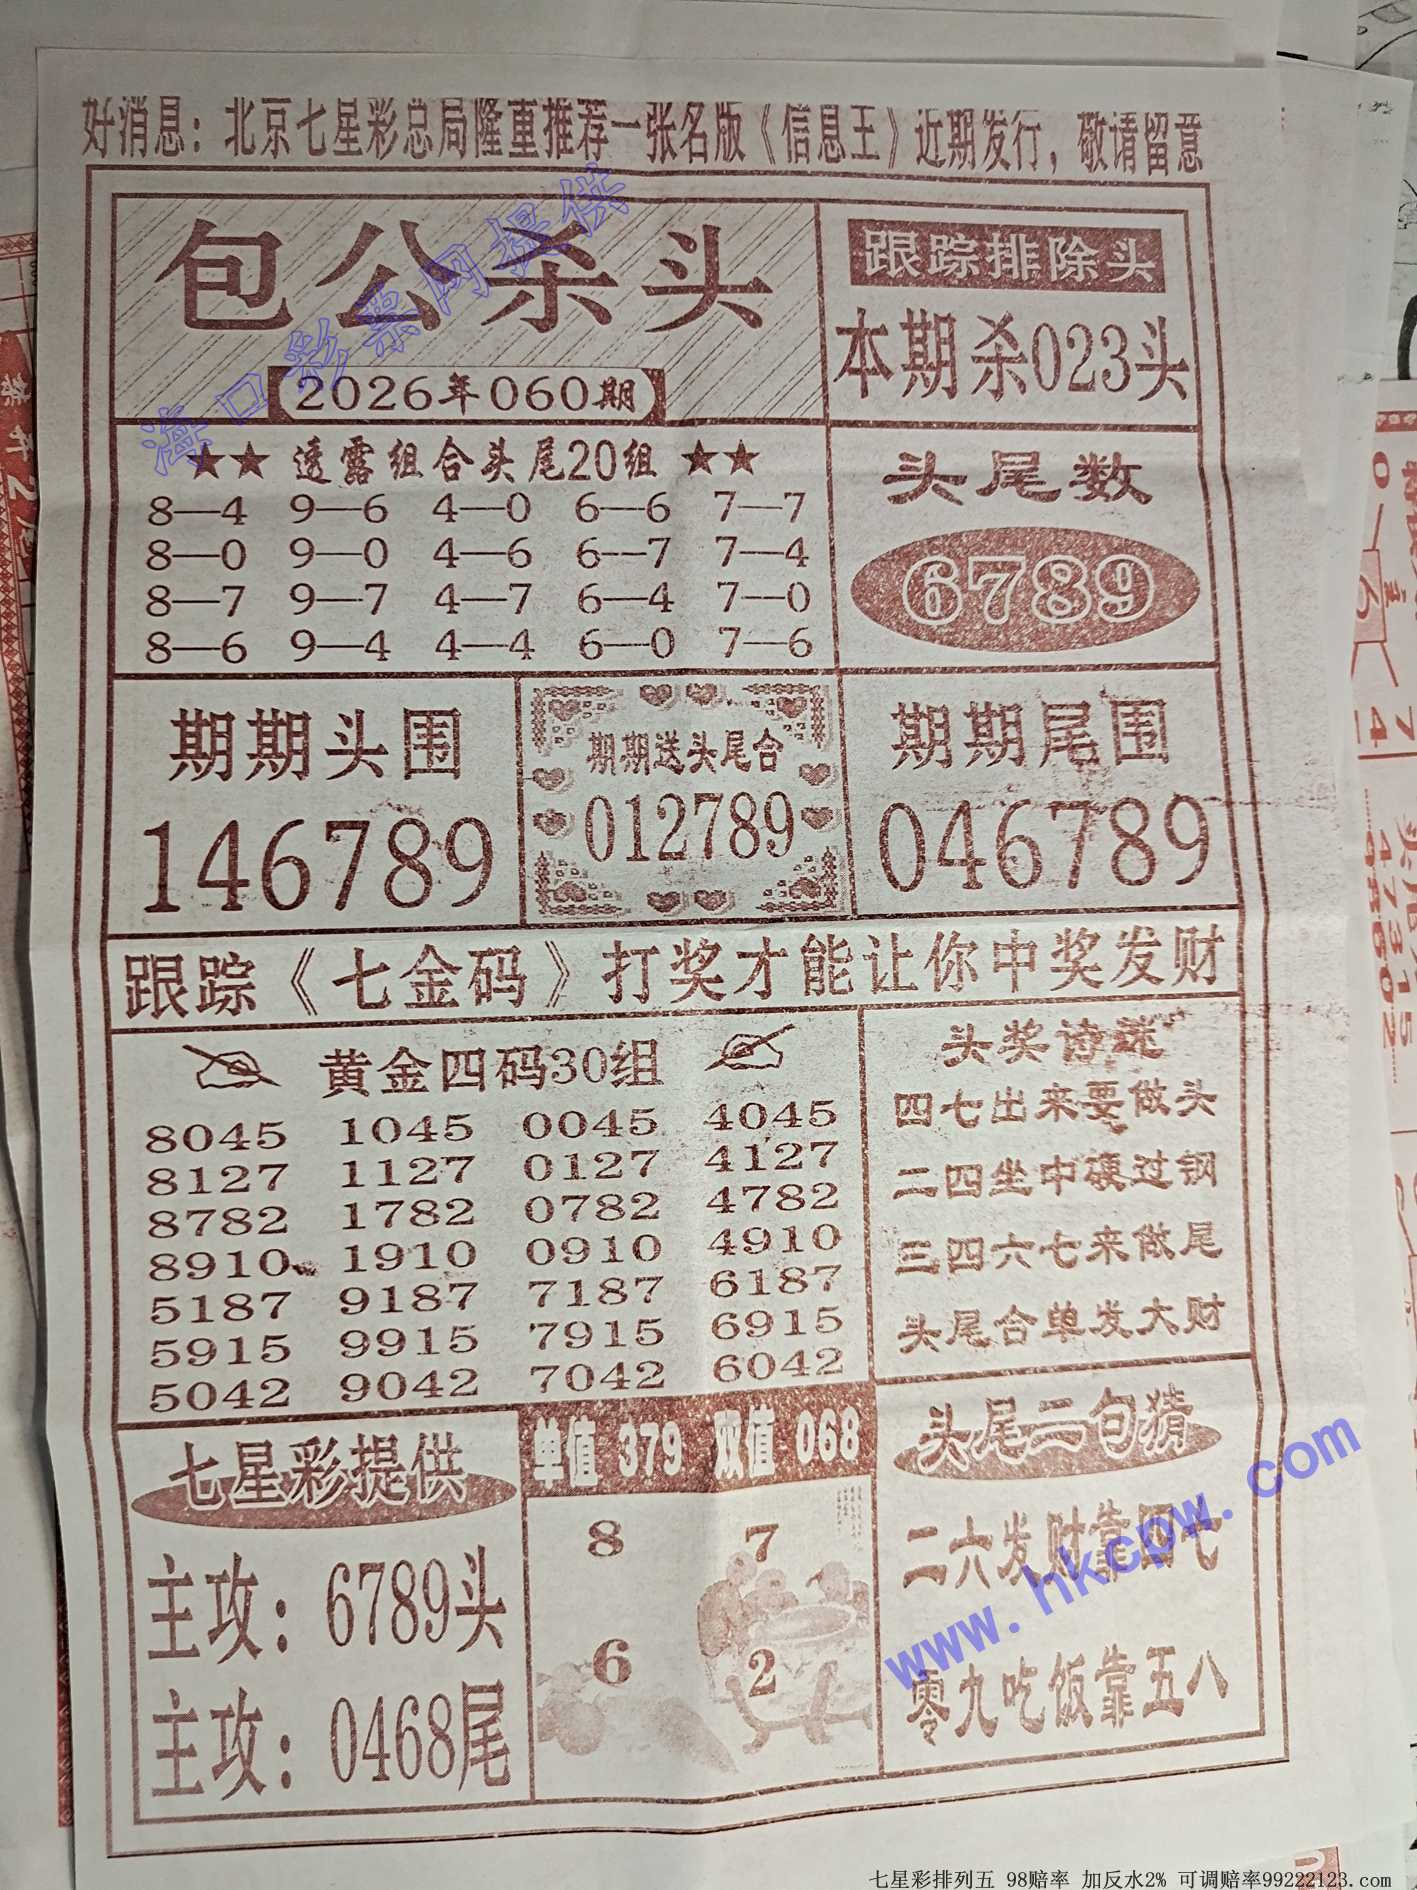 好消息：北京七星彩总局隆重推荐一张名版《信息王》近期发行，敬请留意
包公杀头
【2026年060期】
跟踪排除头
本期杀023头
★★ 透露组合头尾20组 ★★
8—4 9—6 4—0 6—6 7—7
8—0 9—0 4—6 6—7 7—4
8—7 9—7 4—7 6—4 7—0
8—6 9—4 4—4 6—0 7—6
头尾数
6789
期期头围
146789
期期送头尾合
012789
期期尾围
046789
跟踪《七金码》打奖才能让你中奖发财
黄金四码30组
8045 1045 0045 4045
8127 1127 0127 4127
8782 1782 0782 4782
8910 1910 0910 4910
5187 9187 7187 6187
5915 9915 7915 6915
5042 9042 7042 6042
头奖诗迷
四七出来要做头
二四坐中硬过钢
三四六七来做尾
头尾合单发大财
七星彩提供
主攻：6789头
主攻：0468尾
单值 379 双值 068
8 7
6 2
头尾二句猜
二六发财靠四七
零九吃饭靠五八
海口彩票网提供
www.hkcpw.com
七星彩排列五 98赔率 加反水2% 可调赔率99222123.com